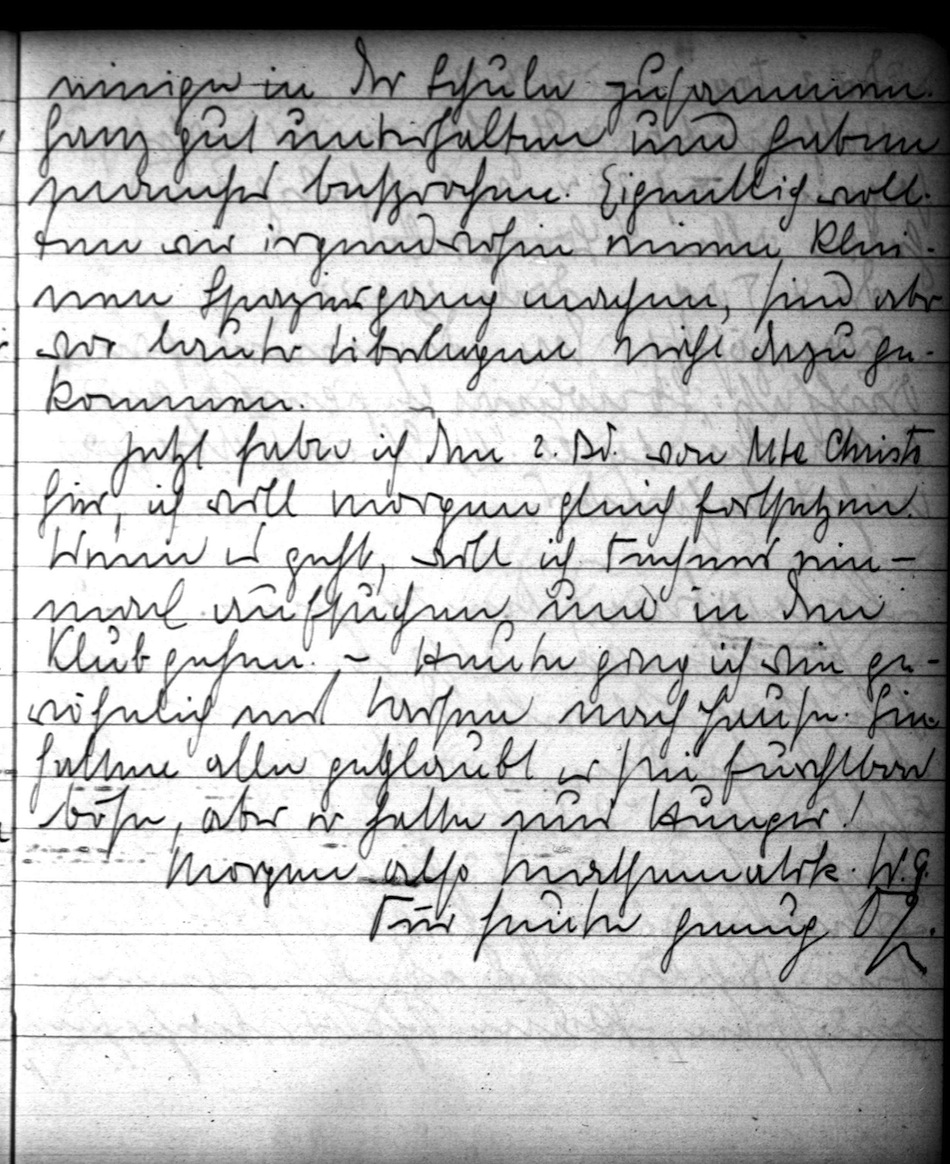 einige in der Schule zusammen.
Ganz gut unterhalten und haben
manches besprochen. Eigentlich woll-
ten wir irgendwohin einen klei-
nen Spaziergang machen, sind aber
vor lauter Überlegen nicht dazu ge-
kommen.
Jetzt habe ich den 2. Bd. von Mte Christo
hier, ich will morgen gleich fortsetzen.
Wenn es geht, will ich einmal ein-
mal aufsuchen und in den
Klub gehen. – Heute ging ich wie ge-
wöhnlich mit nach Hause. Sie
hatten alle geglaubt er sei furchtbar
böse, aber er hatte nur Hunger!
Morgen also Mathematik. W.G.
Für heute genug